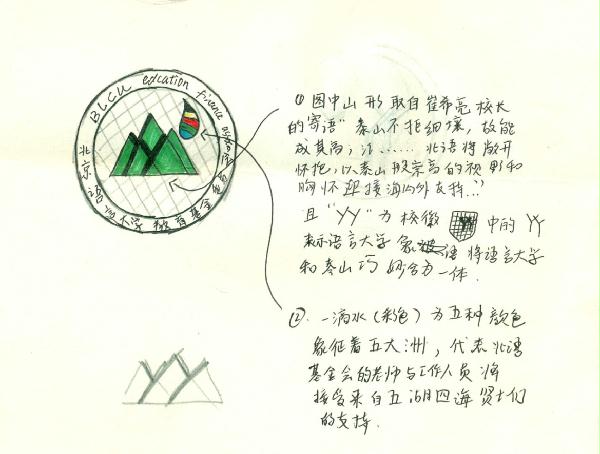 BLCU edcation finence
北京语言大学教育基金会
① 图中山形取自崔希亮校长
的寄语"泰山不拒细壤,故能
成其高;江……北语将敞开
怀抱,以泰山般崇高的视野和
胸怀迎接海内外友持…"
且"YY"为校徽 中的YY
表示语言大学 将语言大学
和泰山巧妙合为一体.
②. 一滴水(彩色)为五种颜色
象征着五大洲,代表北语
基金会的老师与工作人员将
接受来自五湖四海贤士们
的支持.